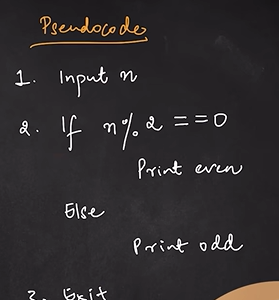 Pseudocode
1. Input n
2. If n%2 == 0
Print even
Else
Print odd
3. Exit